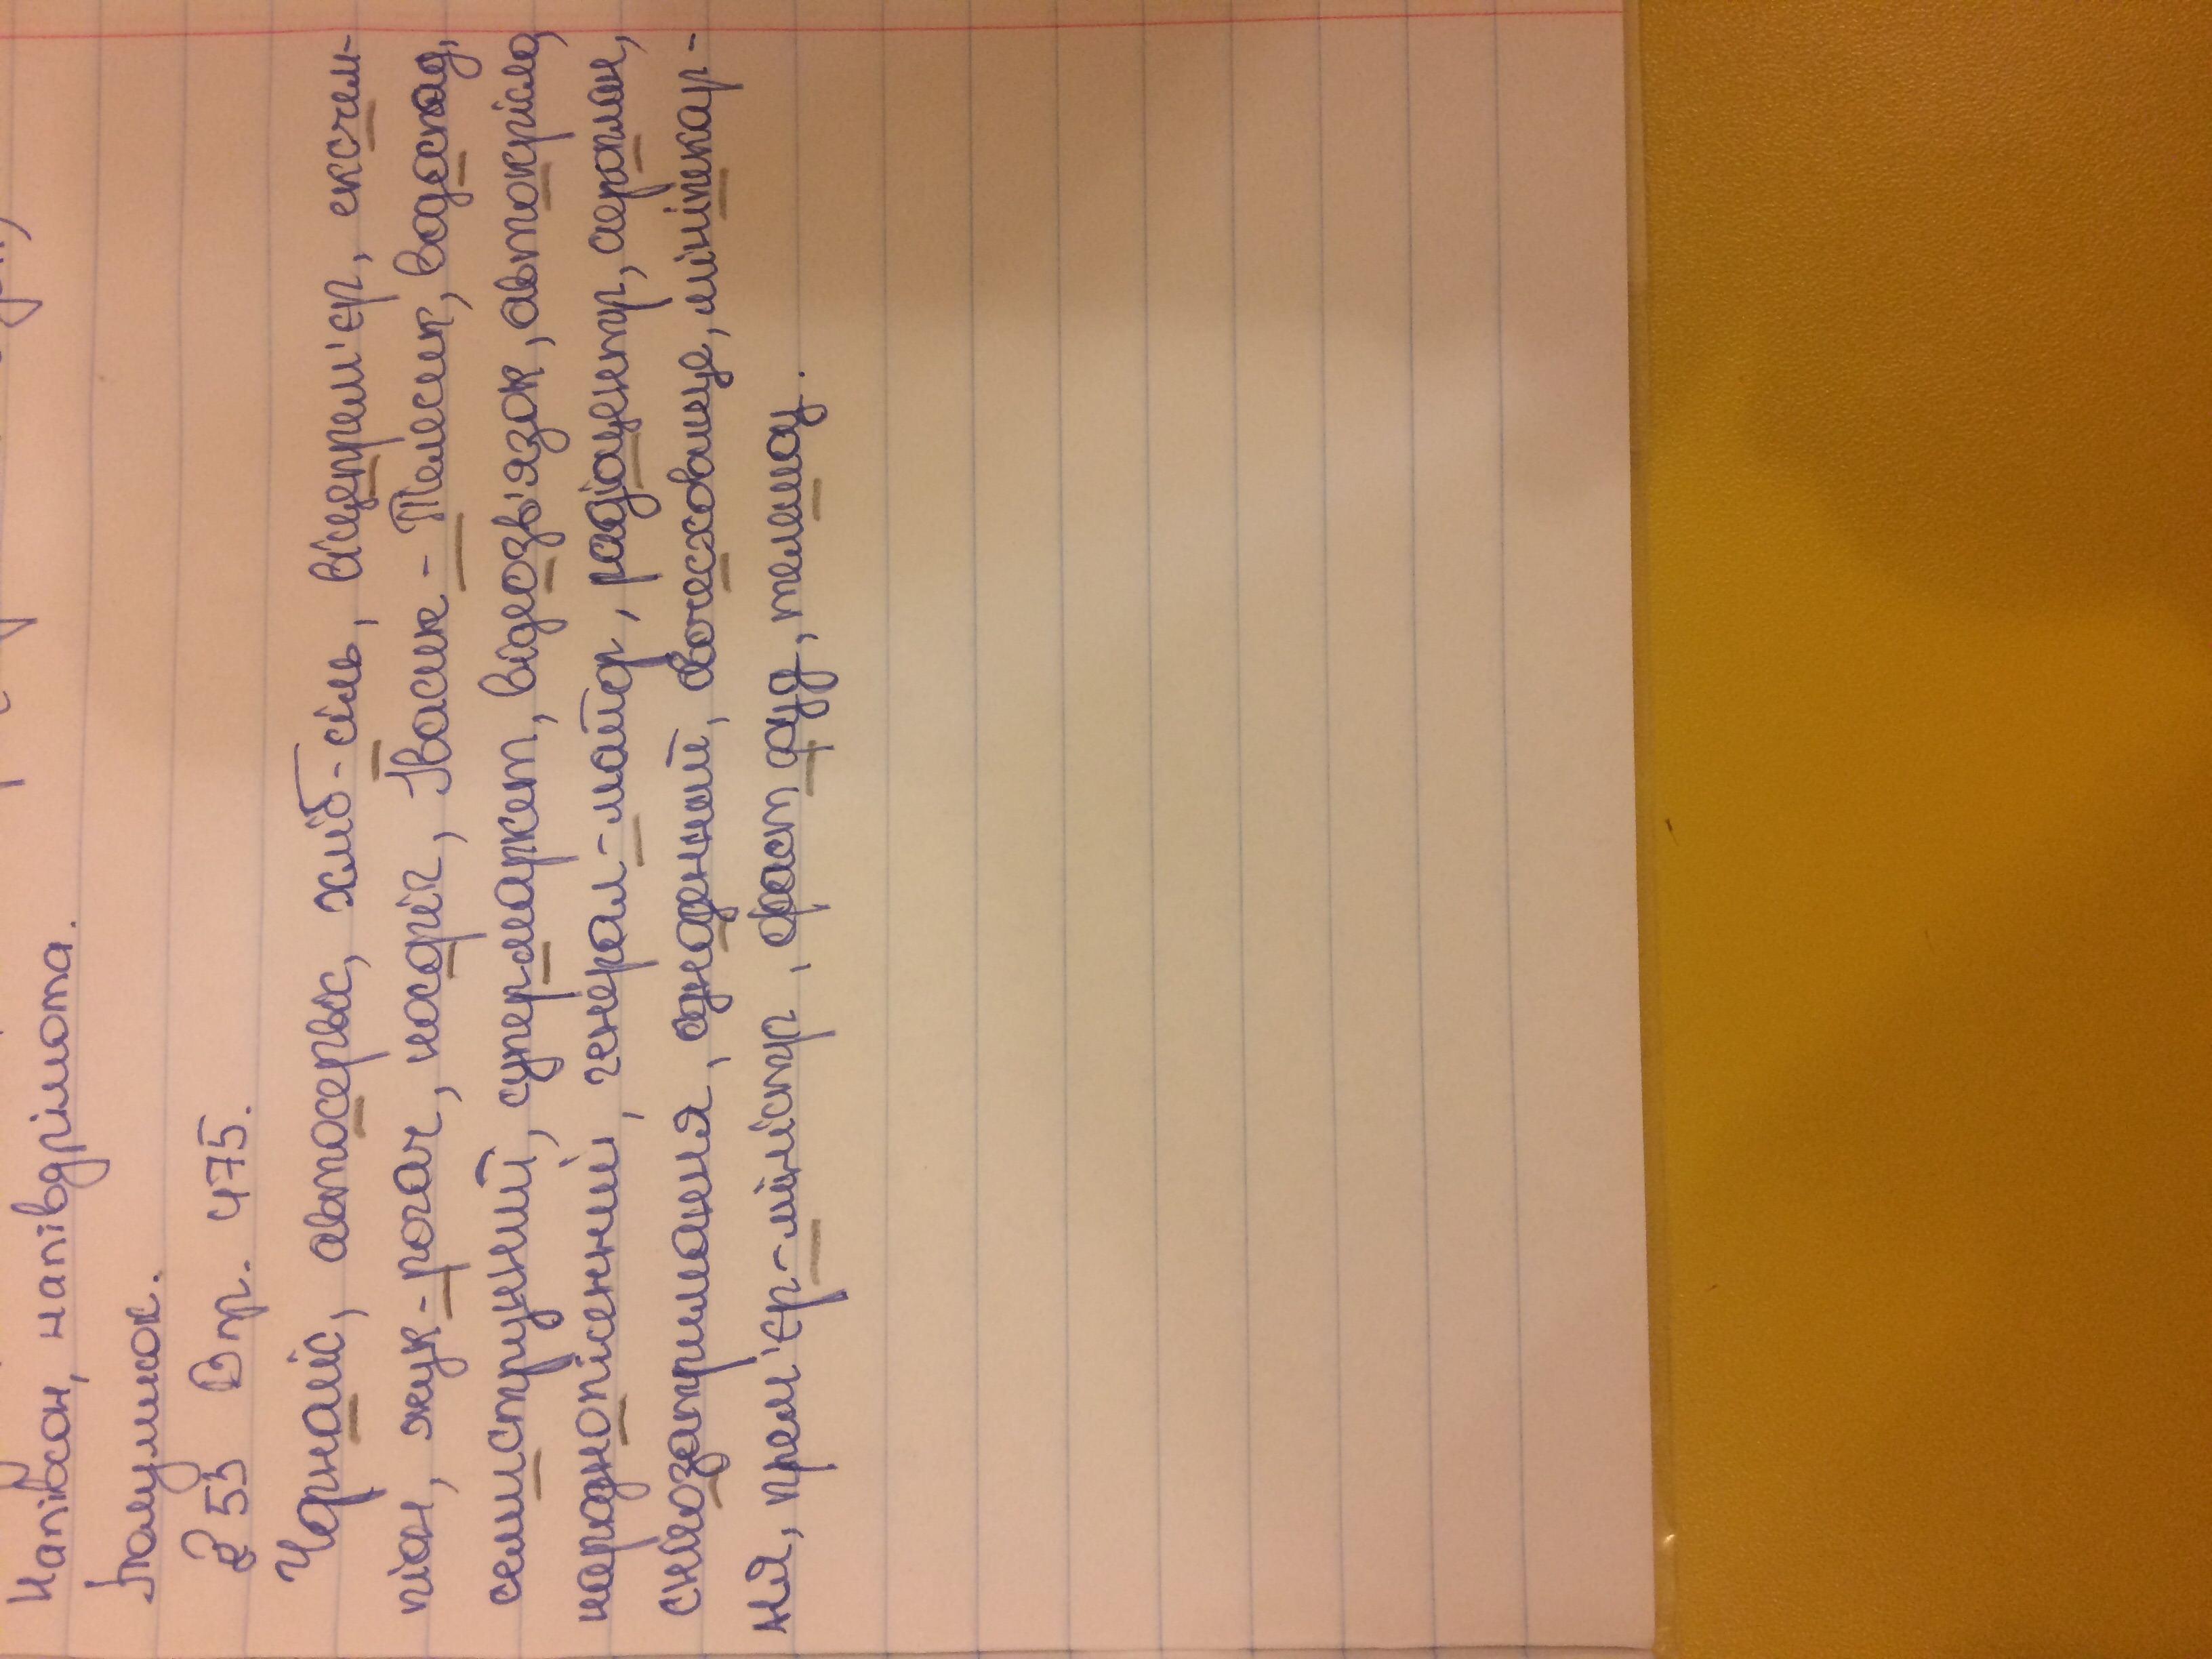 напівсон, напівдрімота.
полумисок.
§ 53 Впр. 475.
Чорноліс, автосервіс, хліб-сіль, віцепрем'єр, ексчем-
піон, жук-рогач, носоріг, Івасик-Телесик, водоспад,
семиструнний, супермаркет, відеозв'язок, автокрісло,
народнопісенний, генерал-майор, радіоцентр, аероплан,
снігозатримання, одноденний, овочесховище, мініпекар-
ня, прем'єр-міністр, фаст фуд, телешоу.